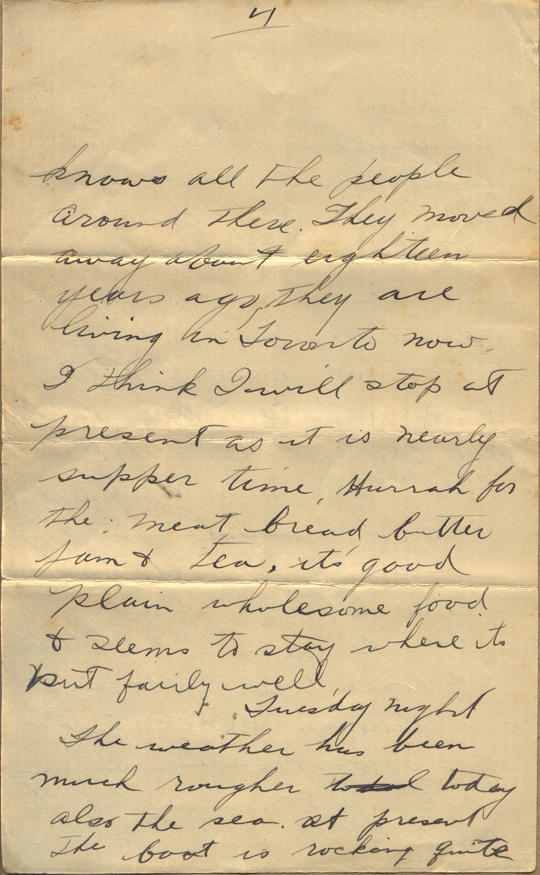 4
knows all the people
around there. They moved
away about eighteen
years ago, they are
living in Toronto now.
I think I will stop at
present as it is nearly
supper time, Hurrah for
the: meat bread butter
jam & tea, its good
plain wholesome food
& seems to stay where its
put fairly well,
Tuesday night
The weather has been
much rougher today
also the sea. at present
The boat is rocking quite